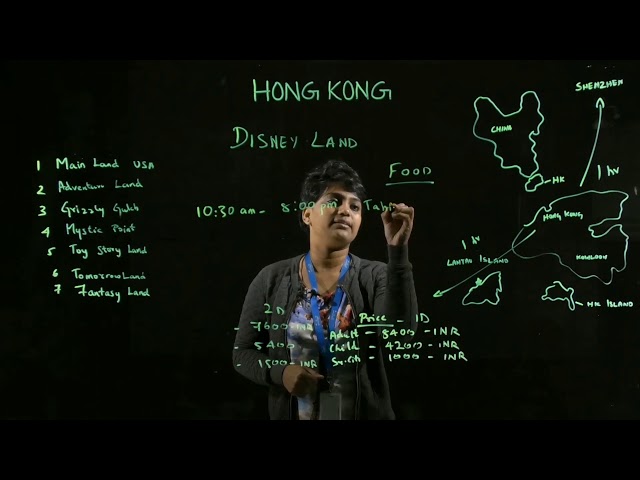 HONG KONG
DISNEY LAND
1 Main Land USA
2 Adventure Land
3 Grizzly Gulch
4 Mystic Point
5 Toy Story Land
6 Tomorrow Land
7 Fantasy Land
FOOD
10:30 am - 8:00 pm
2D
- 7600 - INR
- 5400
- 1500 - INR
Price - 1D
Adult - 5400 - INR
Child - 4200 - INR
- 1000 - INR
SHENZHEN
CHINA
HK
1 hr
HONG KONG
KOWLOON
1 hr
LANTAU ISLAND
HK ISLAND